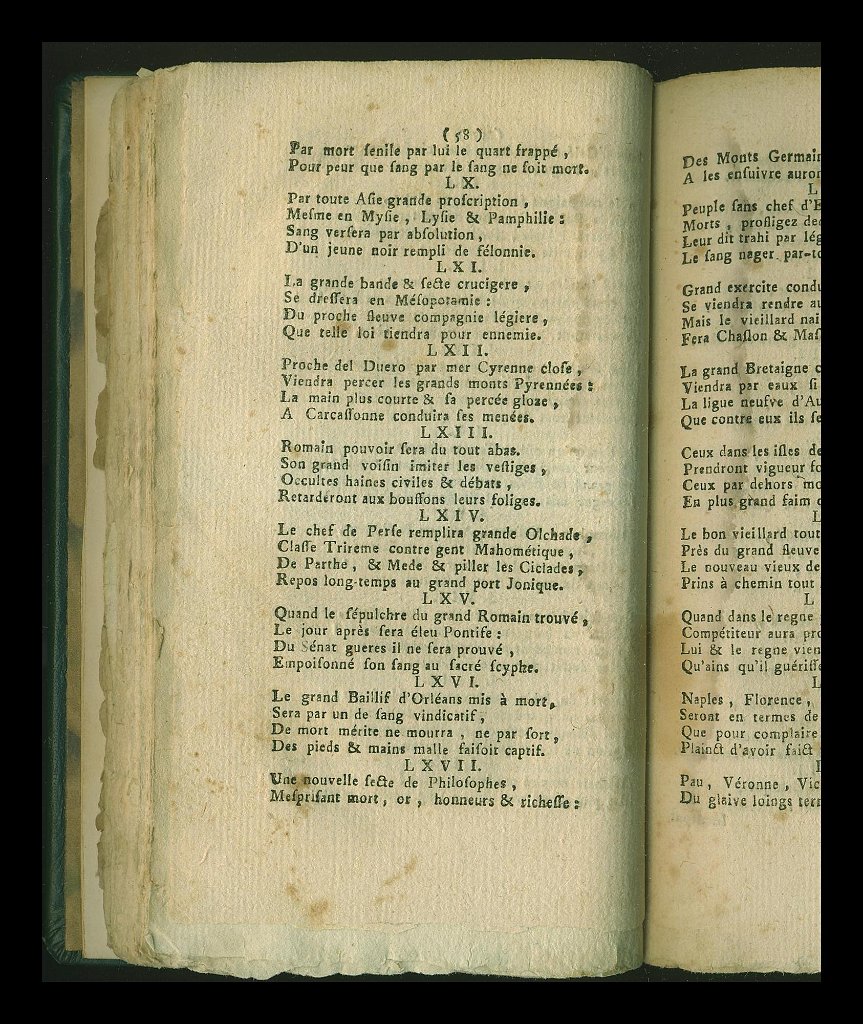 (58)
Par mort ſeniſe par lui le quart frappé,
Pour peur que ſang par le ſang ne ſoit mort.
LX.
Par toute Aſie grande proſcription,
Meſme en Myſie, Lyſie & Pamphilie:
Sang verſera par abſolution,
D'un jeune noir rempli de félonnie.
LXI.
La grande bande & ſecte crucigere,
Se dreſſera en Méſopotamie:
Du proche fleuve compagnie légiere,
Que telle loi tiendra pour ennemie.
LXII.
Proche del Duero par mer Cyrenne cloſe,
Viendra percer les grands monts Pyrennées:
La main plus courte & ſa percée gloze,
A Carcaſſonne conduira ſes menées.
LXIII.
Romain pouvoir ſera du tout abas.
Son grand voiſin imiter les veſtiges,
Occultes haines civiles & débats,
Retarderont aux bouffons leurs foliges.
LXIV.
Le chef de Perſe remplira grande Olchade,
Claſſe Trireme contre gent Mahométique,
De Parthe, & Mede & piller les Ciclades,
Repos long-temps au grand port Jonique.
LXV.
Quand le ſépulchre du grand Romain trouvé,
Le jour après ſera éleu Pontife:
Du Sénat gueres il ne ſera prouvé,
Empoiſonné ſon ſang au ſacré ſcyphe.
LXVI.
Le grand Baillif d'Orléans mis à mort,
Sera par un de ſang vindicatif,
De mort mérite ne mourra, ne par fort,
Des pieds & mains malle faiſoit captif.
LXVII.
Une nouvelle ſecte de Philoſophes,
Meſpriſant mort, or, honneurs & richeſſe:
Des Monts Germain
A les enſuivre auron
L
Peuple ſans chef d'E
Morts, profligez de
Leur dit trahi par lég
Le ſang nager par-to
Grand exercite condu
Se viendra rendre au
Mais le vieillard nai
Fera Chaſlon & Maſ
La grand Bretaigne c
Viendra par eaux ſi
La ligue neufve d'Au
Que contre eux ils ſe
Ceux dans les iſles de
Prendront vigueur fo
Ceux par dehors mo
En plus grand faim
L
Le bon vieillard tout
Près du grand fleuve
Le nouveau vieux de
Prins à chemin tout
L
Quand dans le regne
Compétiteur aura pro
Lui & le regne vien
Qu'ains qu'il guériſſe
L
Naples, Florence,
Seront en termes de
Que pour complaire
Plainct d'avoir faict
Pau, Véronne, Vic
Du glaive loings terr